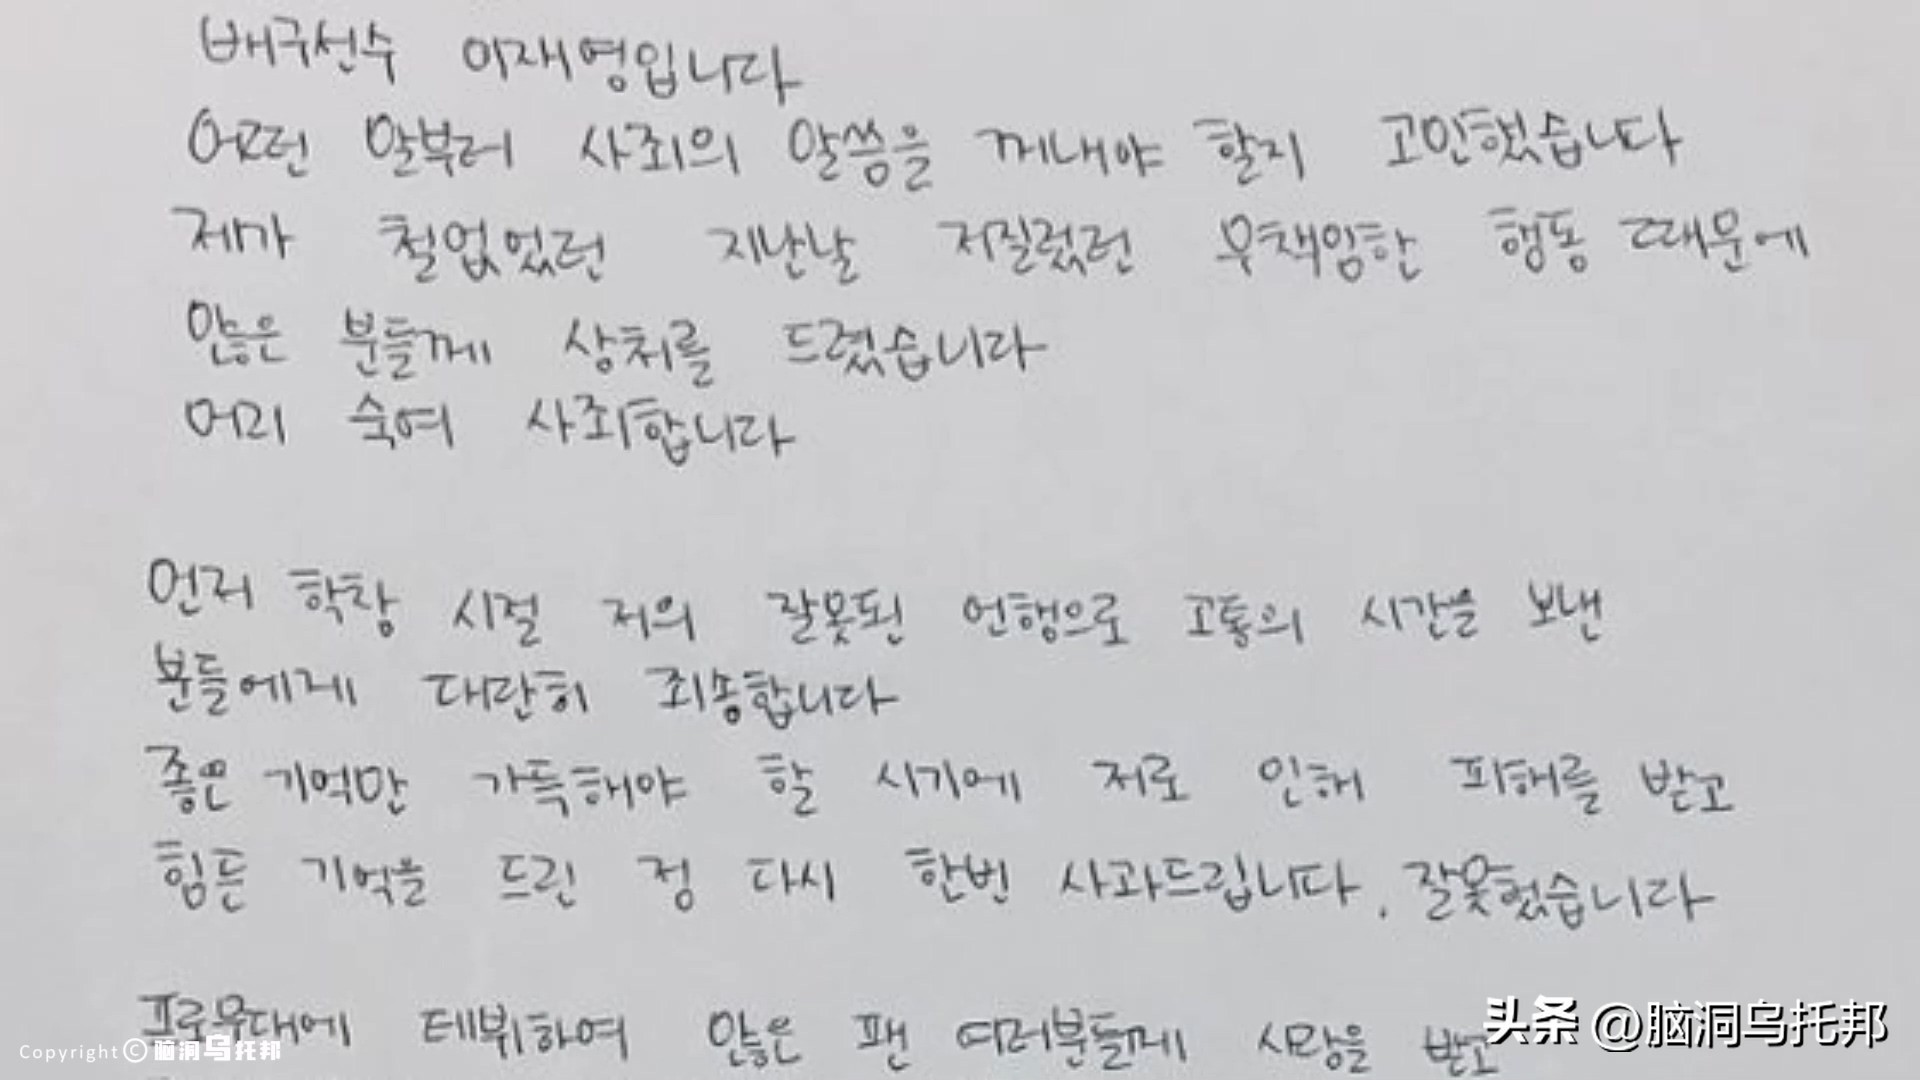 배구선수 이재영입니다
어떤 말부터 사죄의 말씀을 꺼내야 할지 고민했습니다
제가 철없었던 지난날 저질렀던 무책임한 행동 때문에
많은 분들께 상처를 드렸습니다
머리 숙여 사죄합니다
먼저 학창 시절 저의 잘못된 언행으로 고통의 시간을 보낸
분들에게 대단히 죄송합니다
좋은 기억만 가득해야 할 시기에 저로 인해 피해를 받고
힘든 기억을 드린 점 다시 한번 사과드립니다. 잘못했습니다
프로무대에 데뷔하여 많은 팬 여러분들께 사랑을 받고
头条 @脑洞乌托邦
Copyright © 脑洞乌托邦